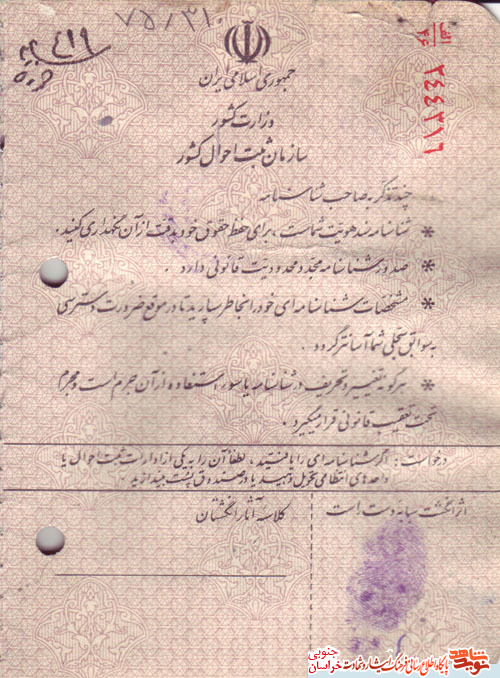 ۷۵/۳۱۰
۴۱۹
الف
۲۶
۲۴۴۳۱۶
جمهوری اسلامی ایران
وزارت کشور
سازمان ثبت احوال کشور
چند تذکر به صاحب شناسنامه
* شناسنامه سند هویت شماست، برای حفظ حقوق خود بدقت از آن نگهداری کنید.
* صدور شناسنامه مجدد محدودیت قانونی دارد.
* مشخصات شناسنامه ای خود را بخاطر بسپارید تا در موقع ضرورت دسترسی
به سوابق سجلی شما آسانتر گردد.
* هرگونه تغییر و تحریف در شناسنامه یا سوء استفاده از آن جرم است و مجرم
تحت تعقیب قانونی قرار میگیرد.
درخواست: اگر شناسنامه ای را یافتید، لطفاً آن را به یکی از ادارات ثبت احوال یا
واحدهای انتظامی تحویل دهید یا در صندوق پست بیندازید
اثر انگشت سبابه دست راست
کلاسه آثار انگشتان
نوید شاهد
پایگاه اطلاع رسانی فرهنگ ایثار و شهادت
خراسان جنوبی